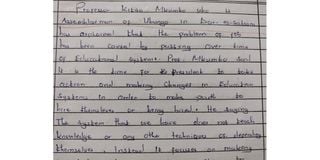 Professor Kitila Mkumbo who is
Assemblerman of Ubungo in Dar-es-Salaam
has explained that the problem of job
has been caused by passing over time
of Educational system. Prof. Mkumbo said
it is the time for the president to take
action and making changes in Education
systems in order to make youth to
hire themselves or being hired. He saying
The system that we have does not teach
knowledge or any other techniques of depending
themselves. Instead it focuses on making